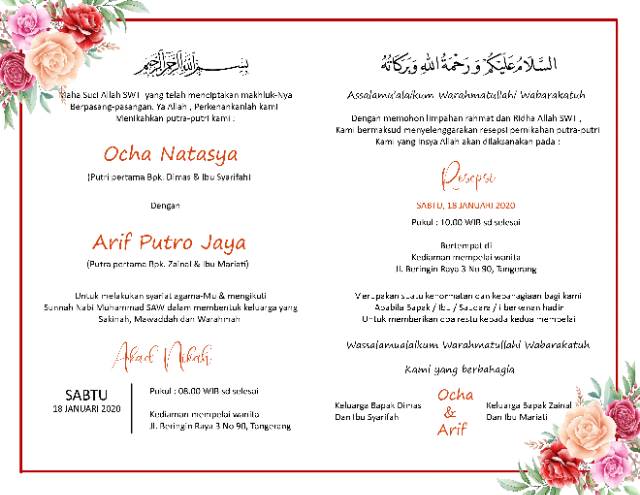 بسم الله الرحمن الرحيم
Maha Suci Allah SWT yang telah menciptakan makhluk-Nya
Berpasang-pasangan. Ya Allah , Perkenankanlah kami
Menikahkan putra-putri kami :
Ocha Natasya
(Putri pertama Bpk. Dimas & Ibu Syarifah)
Dengan
Arif Putro Jaya
(Putra pertama Bpk. Zainal & Ibu Mariati)
Untuk melakukan syariat agama-Mu & mengikuti
Sunnah Nabi Muhammad SAW dalam membentuk keluarga yang
Sakinah, Mawaddah dan Warahmah
Akad Nikah
SABTU
18 JANUARI 2020
Pukul : 08.00 WIB sd selesai
Kediaman mempelai wanita
Jl. Beringin Raya 3 No 90, Tangerang
السلام عليكم ورحمة الله وبركاته
Assalamu'alaikum Warahmatullahi Wabarakatuh
Dengan memohon limpahan rahmat dan Ridha Allah SWT ,
Kami bermaksud menyelenggarakan resepsi pernikahan putra-putri
Kami yang Insya Allah akan dilaksanakan pada :
Resepsi
SABTU, 18 JANUARI 2020
Pukul : 10.00 WIB sd selesai
Bertempat di
Kediaman mempelai wanita
Jl. Beringin Raya 3 No 90, Tangerang
Merupakan suatu kehormatan dan kebahagiaan bagi kami
Apabila Bapak / Ibu / Saudara / i berkenan hadir
Untuk memberikan doa restu kepada kedua mempelai
Wassalamualaikum Warahmatullahi Wabarakatuh
Kami yang berbahagia
Keluarga Bapak Dimas
Dan Ibu Syarifah
Ocha
&
Arif
Keluarga Bapak Zainal
Dan Ibu Mariati